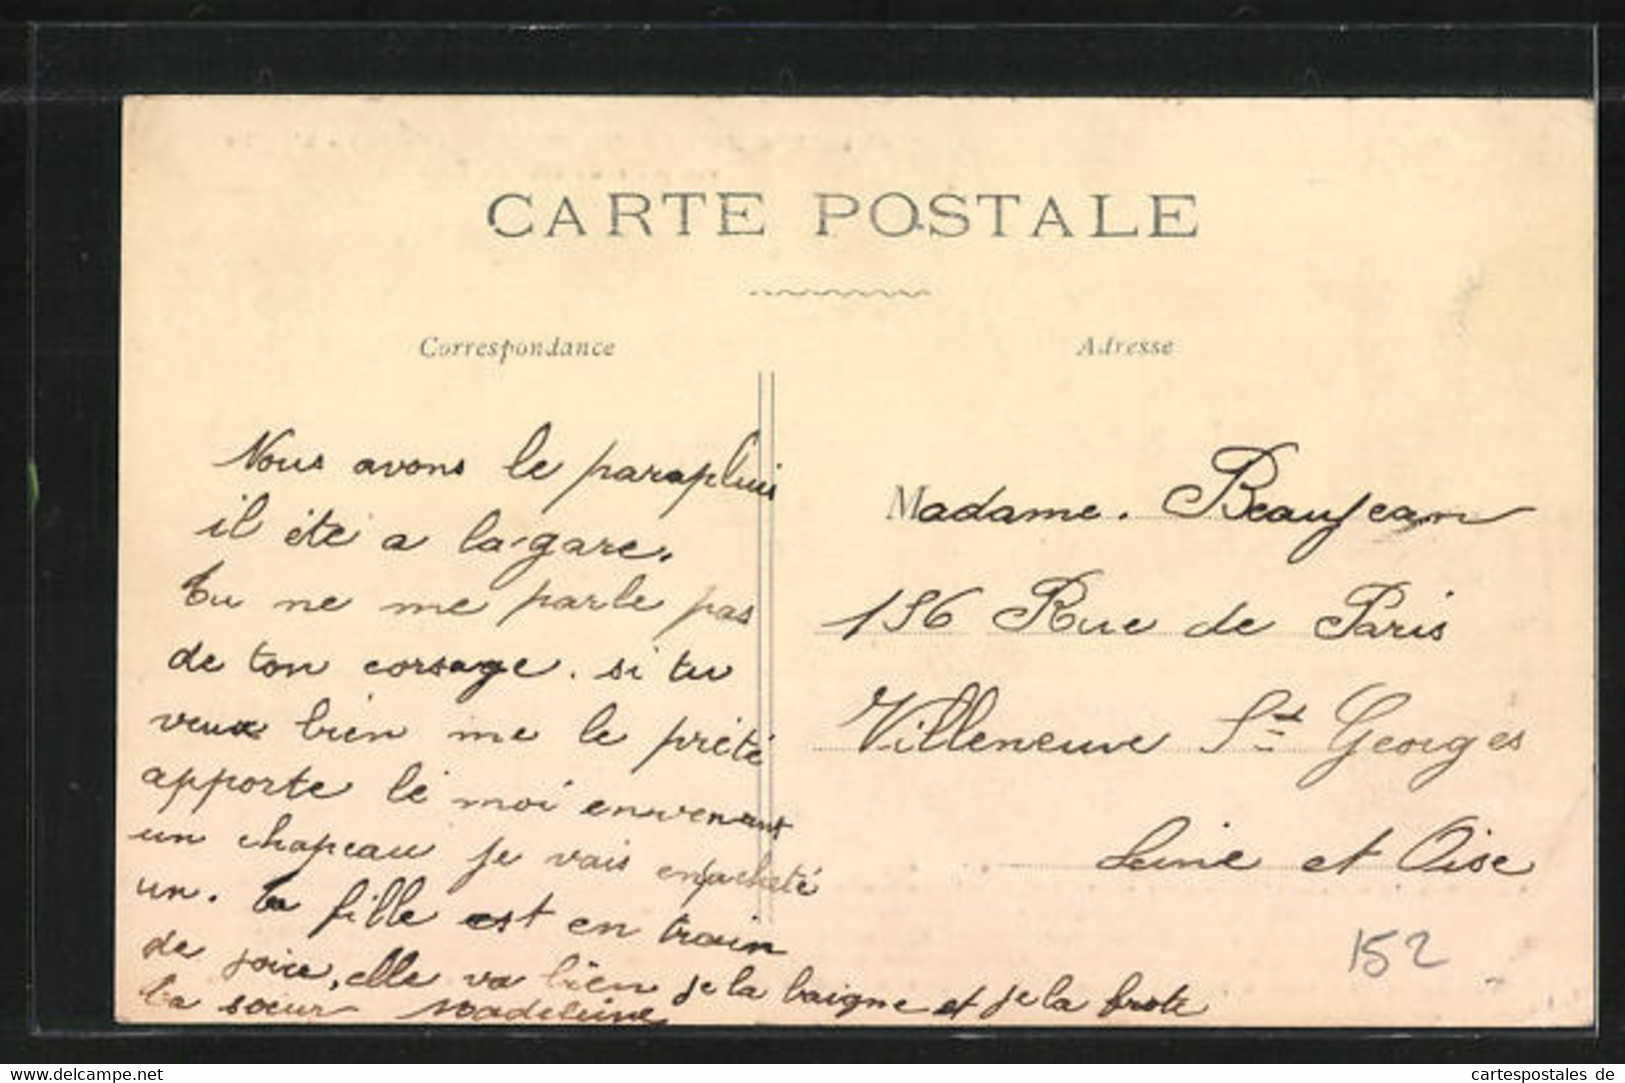 CARTE POSTALE
Correspondance
Nous avons le parapluis
il été a la gare.
tu ne me parle pas
de ton corsage. si tu
veux bien me le prété
apporte le moi en venant
un chapeau je vais en acheté
un. ta fille est en train
de joire, elle va bien je la baigne et je la frote
ta sœur Madeleine
Adresse
Madame. Beaujean
156 Rue de Paris
Villeneuve St Georges
Seine et Oise
152
www.delcampe.net
cartespostales de